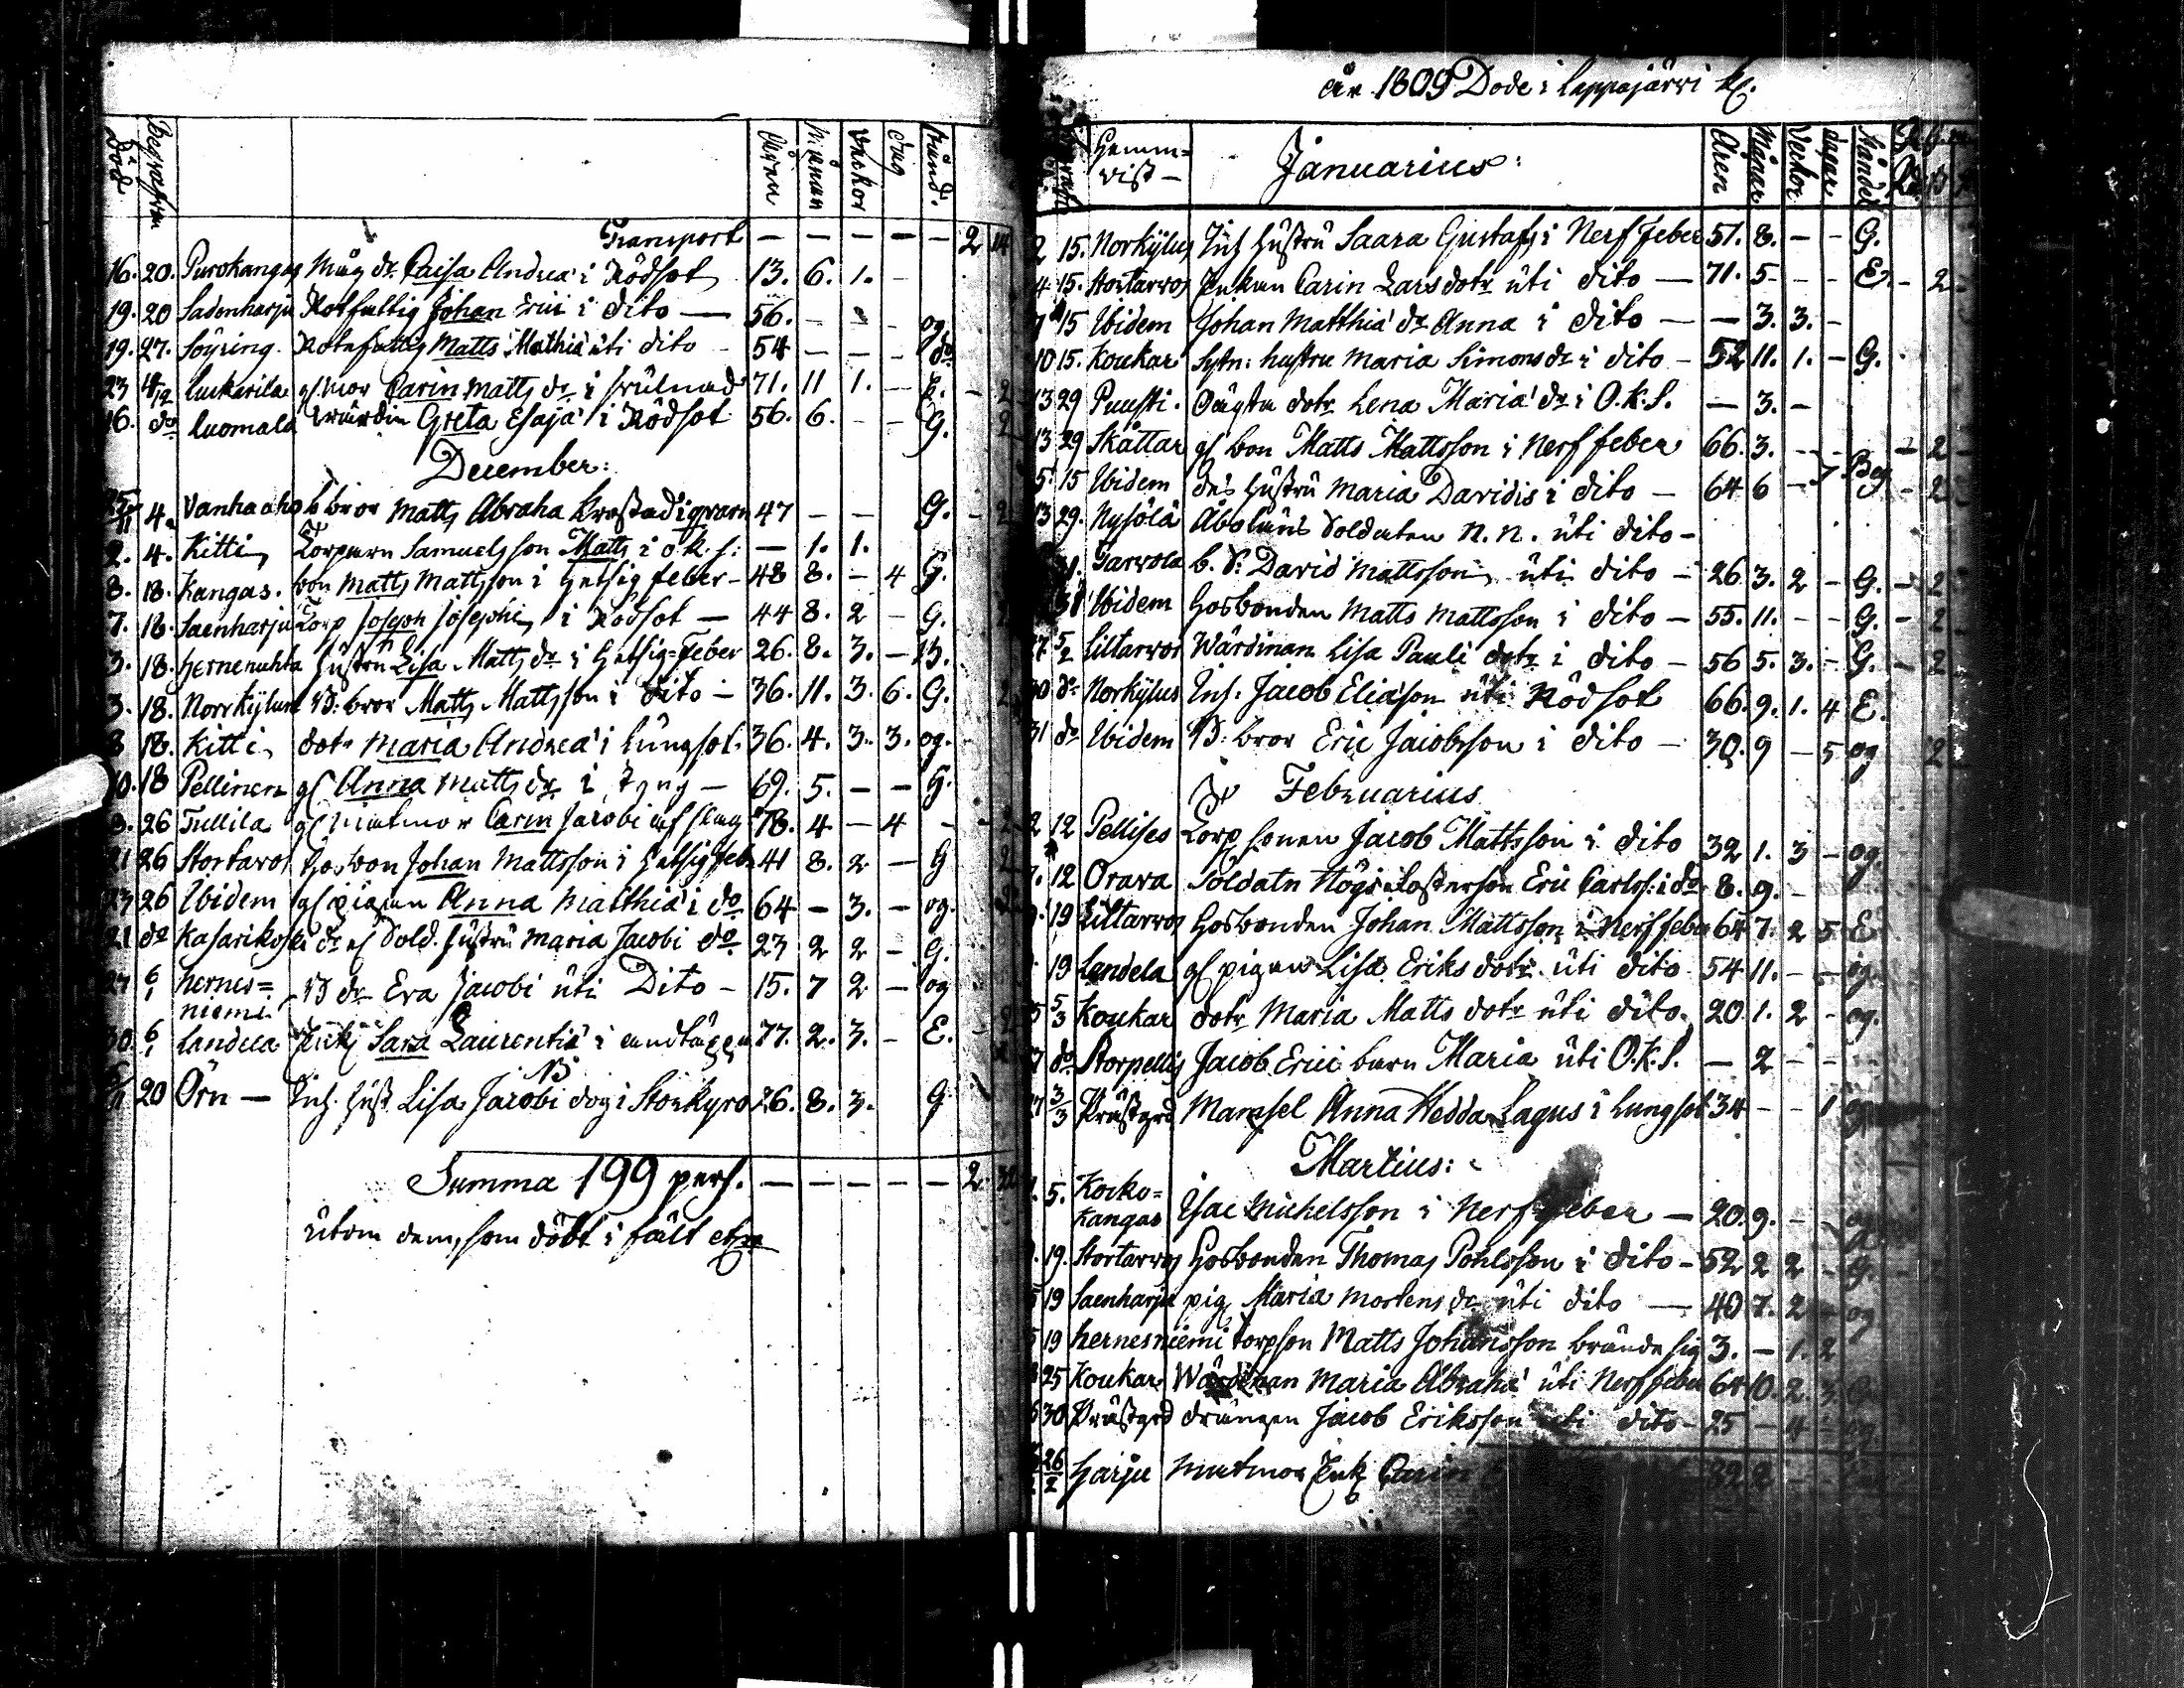 Död
Begrafven
Åren
Månan
Veckor
dag
Stånd.
Transport — — — — — 2 14
16. 20. Purokangas Måg dr. Caisa Andrea i Rödsot 13. 6. 1. -
19. 20 Sadenharju Rotfattig Johan Erici i dito — 56. - - - og.
19. 27. Söyring Rotefattig Matts Mathiæ uti dito - 54 — — — do
23 4/12 Luckarila gl mor Carin Matts dr. i 71. 11 1. — E. - 2
16. do Luomala Wärdin Greta Esajæ i Rödsot 56. 6. - - G. 2
December:
25/11 4. Vanha aho b bror Matts Abraha 47 — — G. - 2
2. 4. Kitti Torparn Samuelsson Matts i o.k.s: — 1. 1.
8. 18. Kangas. bon Matts Mattsson i Hetsig feber - 48 8. - 4 G.
7. 18. Saenharju Torp Joseph Josephi i Rödsot — 44 8. 2 - G.
3. 18. Hernenuhta Hustru Lisa Matts dr i Hetsig-Feber 26. 8. 3. — B.
3. 18. Norrkylus B: bror Matts Mattsson i dito - 36. 11. 3. 6. G. 2
8 18. Kitti dotr Maria Andreæ i lungsot. 36. 4. 3. 3. og.
10. 18 Pellinen gl Anna Matts dr i Styng — 69. 5. — — G.
8. 26 Tullila gl matmor Carin Jacobi af slag 78. 4 — 4 - - 2
21 26 Stortarvos hosbon Johan Mattsson i Hetsig feber 41 8. 2 — G 2
23 26 Ibidem gl pigan Anna Matthiæ i do 64 — 3. — og. 2
21 do Kasarikoski dr af Sold. Hustru Maria Jacobi do. 23 2 2 - G.
27 6/1 Hernes=
niemi B dr Eva Jacobi uti Dito - 15. 7 2 — og
30. 6/1 Landela Enk. Sara Laurentii i andtäppa 77. 2. 3. - E. - 2
NB
20 Örn — Inh. Hust Lisa Jacobi dog i Storkyro 26. 8. 3. G
Summa 199 pers. — — — — — 2.
utom dem, som dödt i fält etc
år 1809 Döde i Lappajärvi kl.
Hemm=
vist —
Januarius:
Åren
Månar
Veckor
dagar
Stånd
2 15. Norkylus Inh Hustru Saara Gustafs i Nerf Feber 51. 8. - - G.
4 15. Stortarvos Enkan Carin Lars dotr uti dito — 71. 5 - - E. - 2
7 15 Ibidem Johan Matthiæ dr Anna i dito — — 3. 3. —
10 15. Koukar Sytn: hustru Maria Simons dr i dito - 52 11. 1. - G.
13 29 Puusti. dotr Lena Maria dr i O.k.S. — 3. —
13 29 Skåttar gl bon Matts Mattsson i Nerf feber 66. 3. - - 2
5. 15 Ibidem des Hustru Maria Davidis i dito - 64 6 - 7. - 2
13 29. Nyjölä Abo läns Soldaten N.N. uti dito -
31. Tarvola b. Sr. David Mattsson uti dito - 26 3. 2 - G. - 2
31 Ibidem Hosbonden Matts Mattsson i dito - 55. 11. - - G. - 2
27 5/2 Liltarvos Wärdinan Lisa Pauli dotr i dito - 56 5. 3. - G. - 2
30 do Norkylus Inh: Jacob Eliasson uti Rödsot 66. 9. 1. 4 E.
31 do Ibidem B: bror Eric Jacobsson i dito - 30. 9 - 5 og 2
Februarius
2 12 Pellises Torp sonen Jacob Mattsson i dito 32 1. 3 - og.
7. 12 Orava Soldatn Högs fosterson Eric Carlss: i do 8. 9. -
9. 19 Liltarvos Hosbonden Johan Mattsson i Nerf feber 64 7. 2 5. E
19 Landela gl pigan Lisa Eriks dotr. uti dito 54 11. - - og.
5/3 Koukar dotr Maria Matts dotr uti dito. 20. 1. 2 - og.
17 do Storpellis Jacob Erici barn Maria uti O.k.S. — 2 - -
27 3/3 Prästgrd Mamsel Anna Hedda Lagus i lungsot 34 - - 1 og
Martius:
1. 5. Kocko=
kangas Isac Michelsson i Nerf feber — 20. 9. - - og
19. Stortarvos Hosbonden Thomas Pohlsson i dito - 52 2 2 - G.
5 19 Saenharju pig Maria Mortens dr uti dito — 40 7. 2 - og
5 19 Hernesniemi torpson Matts Johansson brände sig 3. - 1. 2
25 Koukar Wärdinan Maria Abrahæ uti Nerf feber 64 10. 2. 3.
30 Prästgrd drängen Jacob Eriksson uti dito - 25 — 4 - og.
26/2 Harju Matmor Enk Carin